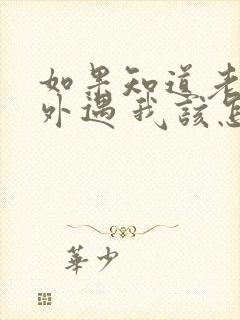 如果知道老
外遇我该怎
華少